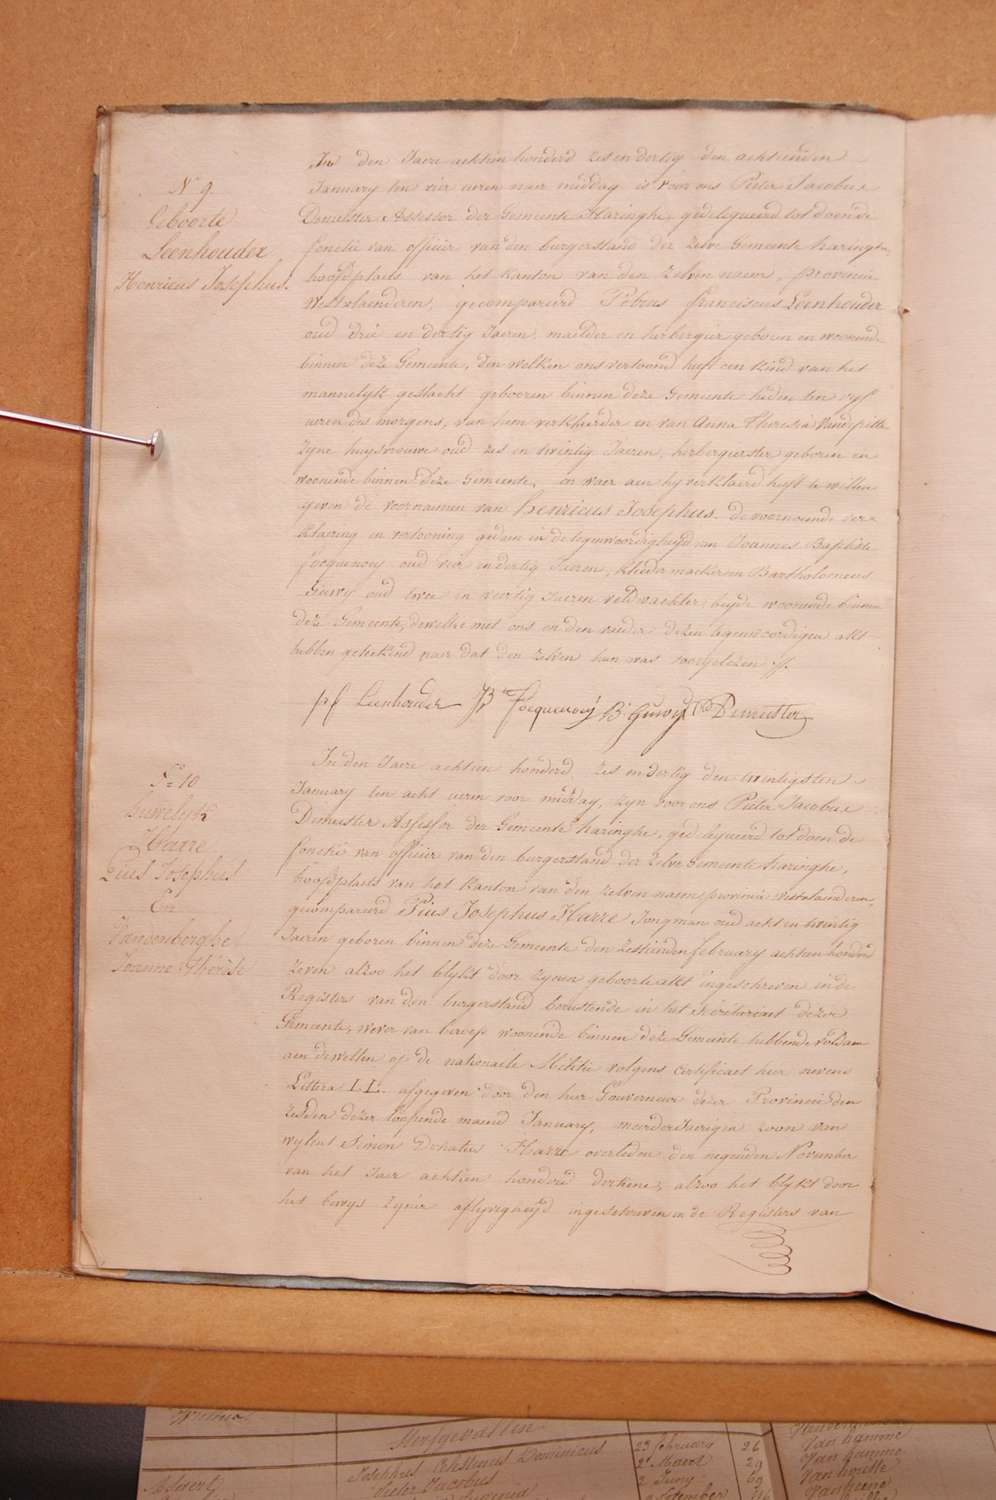 N 9
Geboorte
Leenhouder
Henricus Josephus.
In den Jaere achtien honderd zes en dertig den achtienden
January ten vier uren naer middag is voor ons Pieter Jacobus
Demeester Assessor der Gemeente Haringhe, gedelegueerd tot doen de
fonctie van officier van den burgerstand der zelve Gemeente haringhe,
hoofdplaets van het kanton van den zelven naem, provincie
Westvlaenderen, gecompareerd Petrus franciscus Leenhouder
oud drie en dertig Jaeren, maelder en herbergier geboren en woonende
binnen deze Gemeente, den welken ons vertoond heeft een kind van het
mannelijk geslacht gebooren binnen deze Gemeente heden ten vyf
uren des morgens, van hem verklaerder en van Anna Theresia
zyne huysvrouwe oud zes en twintig Jaeren, herbergierster geboren en
woonende binnen deze Gemeente, en waer aen hy verklaerd heeft te willen
geven de voornaemen van henricus Josephus. de voornoemde ver=
klaering en vertooning gedaen in de tegenwoordigheyd van Joannes Baptiste
focquenoey oud vier en dertig Jaeren, kleedermaeker en Bartholomeus
Guwy oud twee en veertig Jaeren veldwachter, beyde woonende binnen
deze Gemeente, dewelke met ons en den vader dezen tegenwoordigen akt
hebben geteekend naer dat den zelven hun was voorgelezen //.
pf Leenhouder JB focquenoey B Guwy Demeester
N 10
huwelyk
Harre
Pius Josephus
En
Vandenberghe
Joanne Thérèse
In den Jaere achtien honderd zes en dertig den twintigsten
January ten acht uren voor middag, zyn voor ons Pieter Jacobus
Demeester Assessor der Gemeente haringhe, gedelegueerd tot doen de
fonctie van officier van den burgerstand der zelve Gemeente haringhe,
hoofdplaets van het kanton van den zelven naem provincie westvlaenderen,
gecompareerd Pius Josephus Harre Jongman oud acht en twintig
Jaeren geboren binnen deze Gemeente den zesthienden february achtien honderd
zeven alzoo het blykt door zynen geboorte akt ingeschreven in de
Registers van den burgerstand berustende in het secretariaet dezer
Gemeente, wever van beroep woonende binnen deze Gemeente hebbende voldaen
aen de wetten op de nationaele Militie volgens certificaet hier nevens
Littera LL. afgegeven door den heer Gouverneur dezer Provincie den
zesden dezer loopende maend January, meerderjaerigen zoon van
wylent Simon Donatus Harre overleden den negenden November
van het Jaer achtien honderd derthiene, alzoo het blykt door
het bewys zyner aflyvigheyd ingeschreven in de Registers van
Sterfgevallen
Josephus Dominicus 23 february 26
Pieter Jacobus 2 Maert 29
2 Juny 69
Van hamme
Van hamme